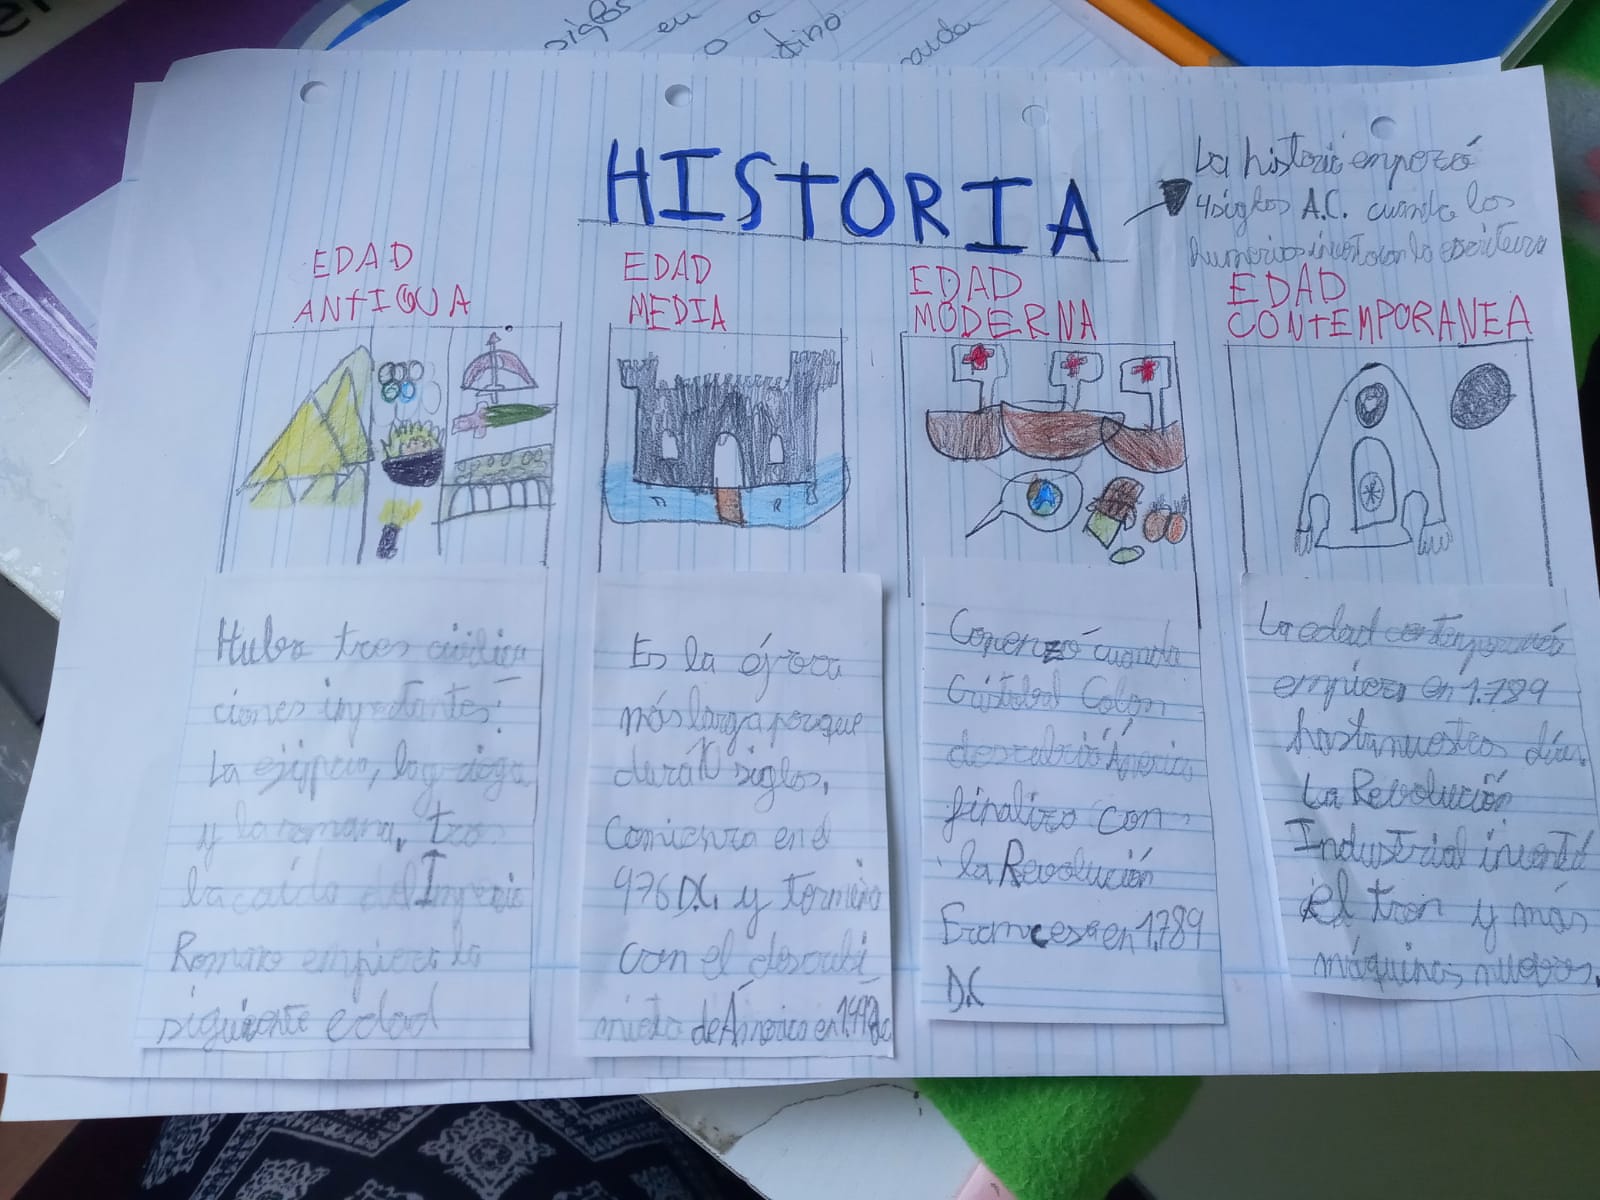 siglos en a
o tino
HISTORIA
La historia empezó
4 siglos A.C. cuando los
humanos inventaron la escritura
EDAD
ANTIGUA
Hubo tres civiliza
ciones importantes:
La egipcia, la griega
y la romana, tras
la caída del Imperio
Romano empieza la
siguiente edad
EDAD
MEDIA
Es la época
más larga porque
durá 10 siglos,
Comienza en el
976 D.C. y termina
con el descubi
miento de América en 1.492 d.c
EDAD
MODERNA
Comenzó cuando
Cristobal Colon
descubrió América
finalizo con
la Revolución
Francesa en 1.789
D.C
EDAD
CONTEMPORANEA
La edad contemporanea
empieza en 1.789
hasta nuestros días.
La Revolución
Industrial inventó
el tren y más
máquinas nuevas.